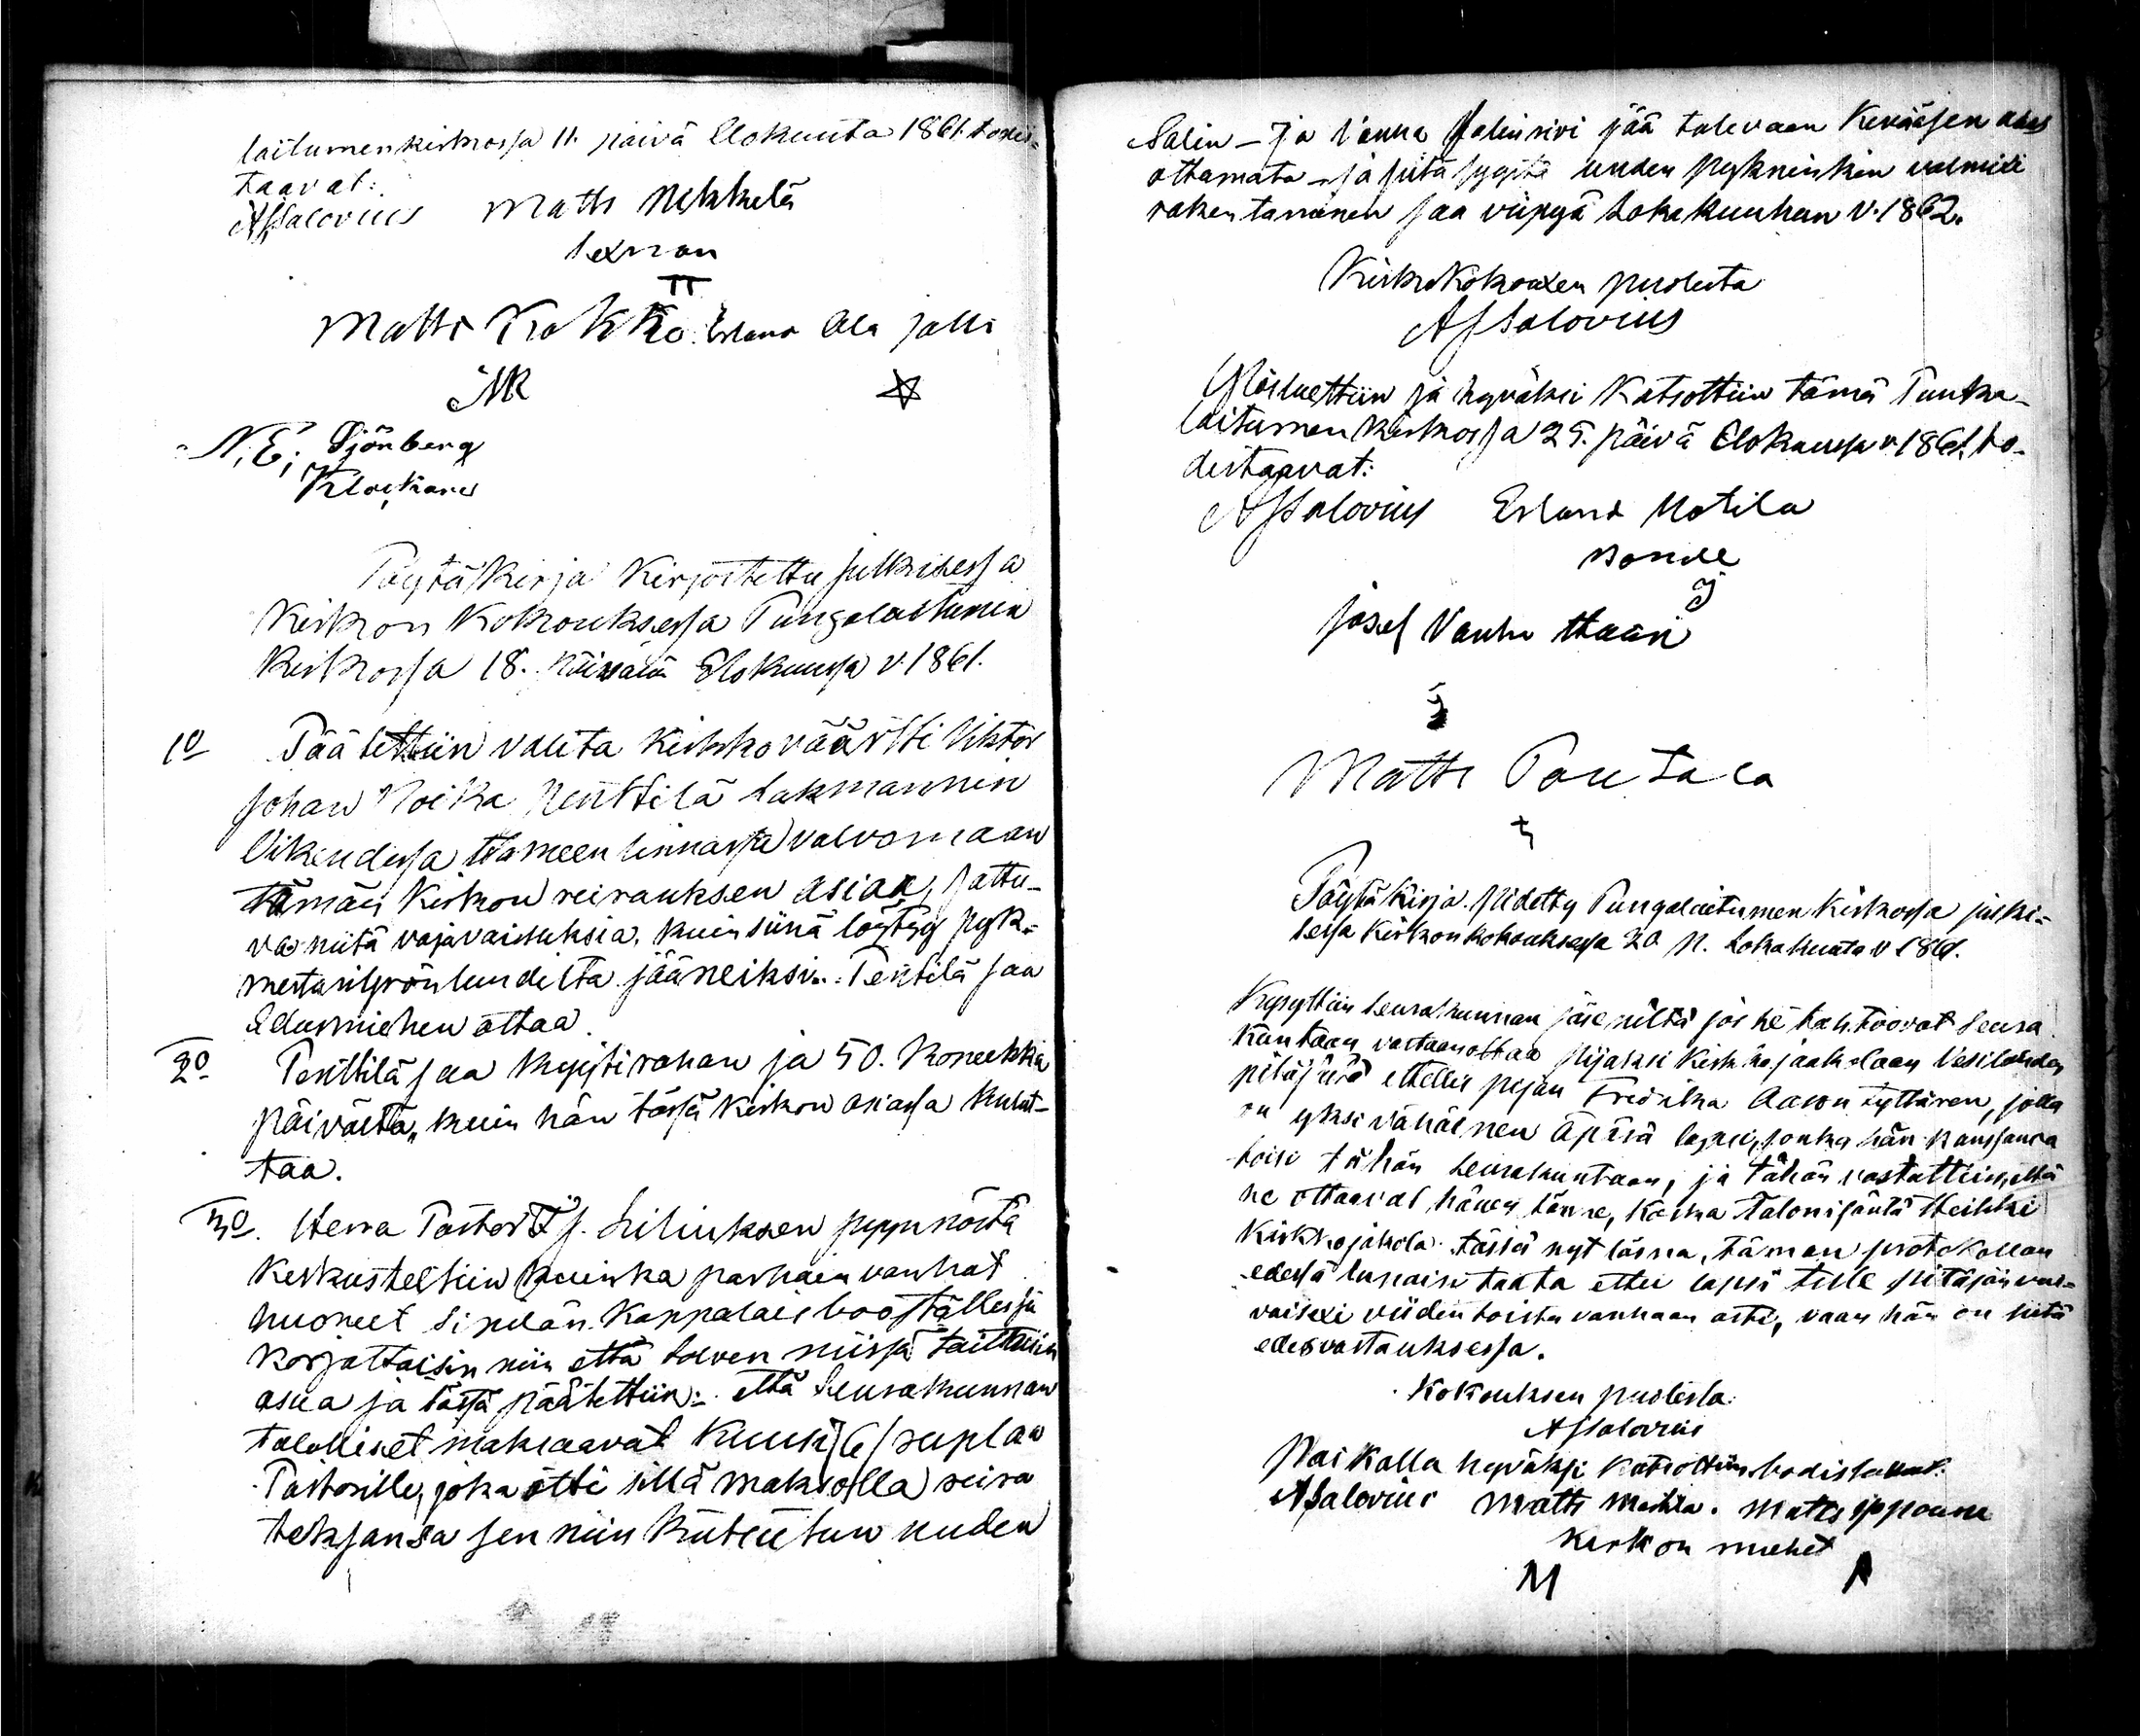 laitumen kirkossa 11. päivä Elokuuta 1861. todis-
taavat:
AJSalovius Matts Nekkelä
Sexman
Matts Kokko Erland Ala jalli
MK
N. E. Sjönberg
Klockare
Pöytäkirja Kirjoitettu julkisessa
Kirkon Kokouksessa Pungalaitumen
Kirkossa 18. päivänä Elokuussa v. 1861.
1o Päätettiin valita kirkkoväärtti Viktor
Johan Penttilä Lakmannin
Oikeudessa Hameenlinnassa valvomaan
tämän Kirkon reivauksen asiaa, sattu-
va niitä vajavaisuksia, kuin siinä löytyy pyk-
mestari Grönlundilta jääneiksi. Penttilä saa
Edusmiehen ottaa.
2o Penttilä saa kyytirahan ja 50. Kopeekka
päivältä, kuin hän tässä Kirkon asiassa kulut-
taa.
3o. Herra Pastori F. J. Liliuksen pyynnöstä
Keskusteltiin kuinka parhain vanhat
huoneet Sipilän Kappalais boställessä
korjattaisin niin että talven niissä taittaisiin
asua ja tässä päätettiin: että Seurakunnan
talolliset maksaavat kuusi /6/ ruplaa
Pastorille, joka otti sillä maksolla seiva
teksansa sen niin kutsutun uuden
Salin - ja vanha Salin sivi jää talvaan Kevääsen
ottamata - ja siitä syystä uuden pykninkin valmixi
rakentaminen saa viipyä Lokakuuhun v. 1862.
Kirkokokouxen puolesta
AJSalovius
Ylösluettiin ja hyväksi Katsottiin tämä Punka-
laitumen Kirkossa 25. päivä Elokuussa v. 1861. to-
distaavat:
AJSalovius Erland Uotila
Bonde
Josef Vanha Haari
Matts Pou ta la
Pöytä Kirja pidetty Pungalaitumen Kirkossa julki-
sessa Kirkon kokouksessa 20 p. Lokakuuta v 1861.
Kysyttiin Seurakunnan jäseniltä jos he tahtoovat Seura
kuntaan vastaanottaa piijaksi Kirkkojaakolaan Vesilahden
pitäjästä ettellis pijan Fredrika Aaron tyttären, jolla
on yksi vähäinen äpärä lapsi, jonka hän kanssansa
toisi tähän Seurakuntaan, ja tähän vastattiin, että
he ottaavat hänen tänne, koska Talonisäntä Heikki
Kirkkojakola tässä nyt läsnä, tämän protokollan
edessä lupaisi taata ettei lapsi tule pitäjän vai-
vaisexi viidentoista vanhaan asti, vaan hän on siitä
edesvastauksessa.
Kokouksen puolesta:
AJSalovius
Paikalla hyväksi katsottiin todistavat.
AJSalovius Matts Mashia. Matts Ypponen
Kirkon miehet
M